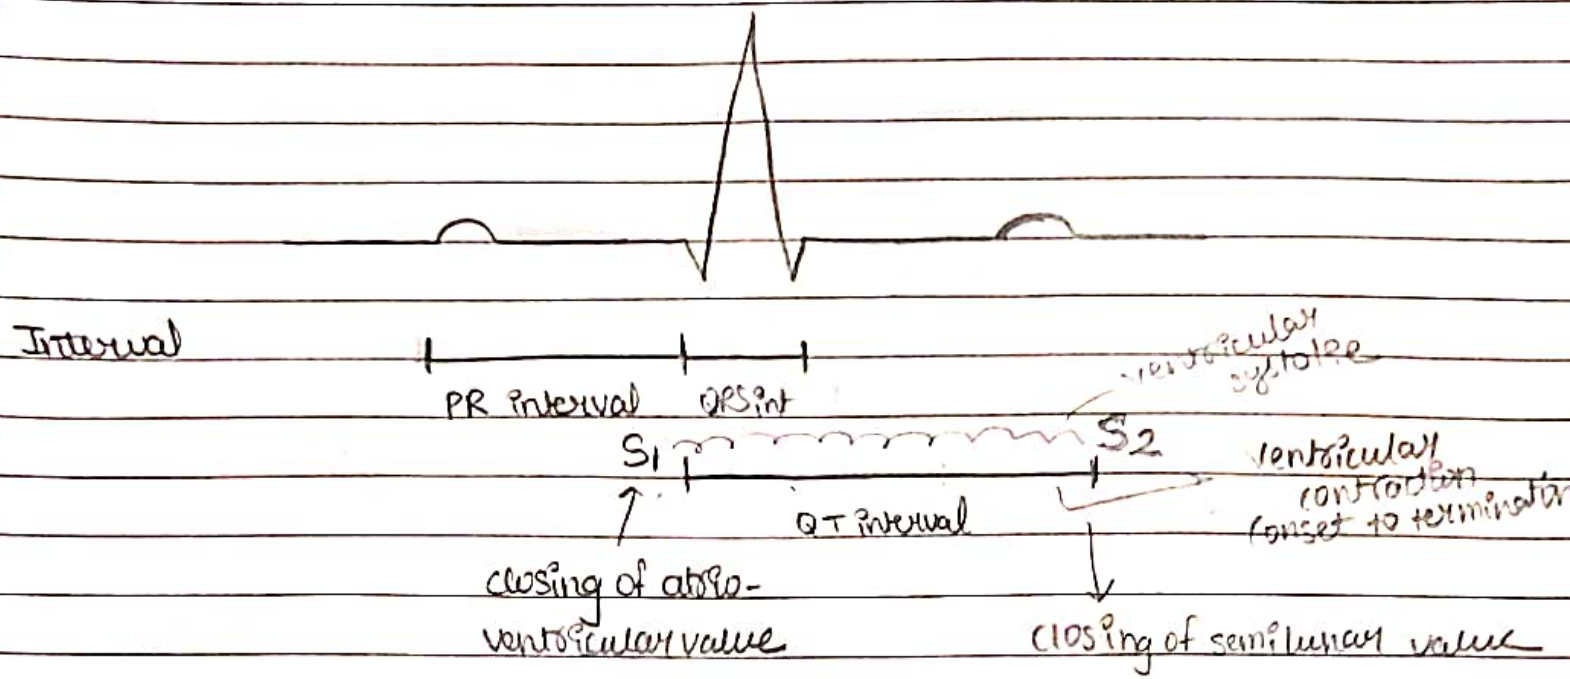 Interval
PR interval QRS int
ventricular
systole
S1 S2
QT interval
ventricular
contraction
(onset to termination
closing of atrio-
ventricular value
closing of semilunar value